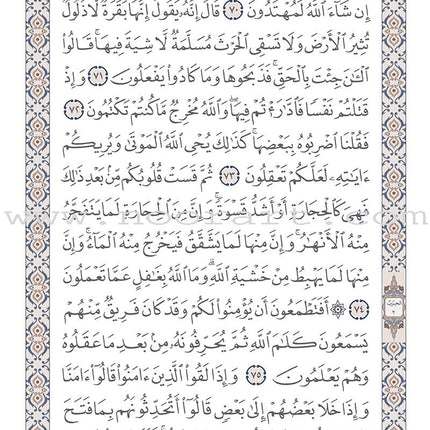 إِن شَآءَ ٱللَّهُ لَمُهْتَدُونَ ٧٠ قَالَ إِنَّهُۥ يَقُولُ إِنَّهَا بَقَرَةٌ لَّا ذَلُولٌ
تُثِيرُ ٱلْأَرْضَ وَلَا تَسْقِى ٱلْحَرْثَ مُسَلَّمَةٌ لَّا شِيَةَ فِيهَا ۚ قَالُوا۟
ٱلْـَٔـٰنَ جِئْتَ بِٱلْحَقِّ ۚ فَذَبَحُوهَا وَمَا كَادُوا۟ يَفْعَلُونَ ٧١ وَإِذْ
قَتَلْتُمْ نَفْسًا فَٱدَّٰرَْٰٔتُمْ فِيهَا ۖ وَٱللَّهُ مُخْرِجٌ مَّا كُنتُمْ تَكْتُمُونَ ٧٢
فَقُلْنَا ٱضْرِبُوهُ بِبَعْضِهَا ۚ كَذَٰلِكَ يُحْىِ ٱللَّهُ ٱلْمَوْتَىٰ وَيُرِيكُمْ
ءَايَـٰتِهِۦ لَعَلَّكُمْ تَعْقِلُونَ ٧٣ ثُمَّ قَسَتْ قُلُوبُكُم مِّنۢ بَعْدِ ذَٰلِكَ
فَهِىَ كَٱلْحِجَارَةِ أَوْ أَشَدُّ قَسْوَةً ۚ وَإِنَّ مِنَ ٱلْحِجَارَةِ لَمَا يَتَفَجَّرُ
مِنْهُ ٱلْأَنْهَـٰرُ ۚ وَإِنَّ مِنْهَا لَمَا يَشَّقَّقُ فَيَخْرُجُ مِنْهُ ٱلْمَآءُ ۚ وَإِنَّ
مِنْهَا لَمَا يَهْبِطُ مِنْ خَشْيَةِ ٱللَّهِ ۗ وَمَا ٱللَّهُ بِغَـٰفِلٍ عَمَّا تَعْمَلُونَ
٧٤ ۞ أَفَتَطْمَعُونَ أَن يُؤْمِنُوا۟ لَكُمْ وَقَدْ كَانَ فَرِيقٌ مِّنْهُمْ
يَسْمَعُونَ كَلَـٰمَ ٱللَّهِ ثُمَّ يُحَرِّفُونَهُۥ مِنۢ بَعْدِ مَا عَقَلُوهُ
وَهُمْ يَعْلَمُونَ ٧٥ وَإِذَا لَقُوا۟ ٱلَّذِينَ ءَامَنُوا۟ قَالُوٓا۟ ءَامَنَّا
وَإِذَا خَلَا بَعْضُهُمْ إِلَىٰ بَعْضٍ قَالُوٓا۟ أَتُحَدِّثُونَهُم بِمَا فَتَحَ